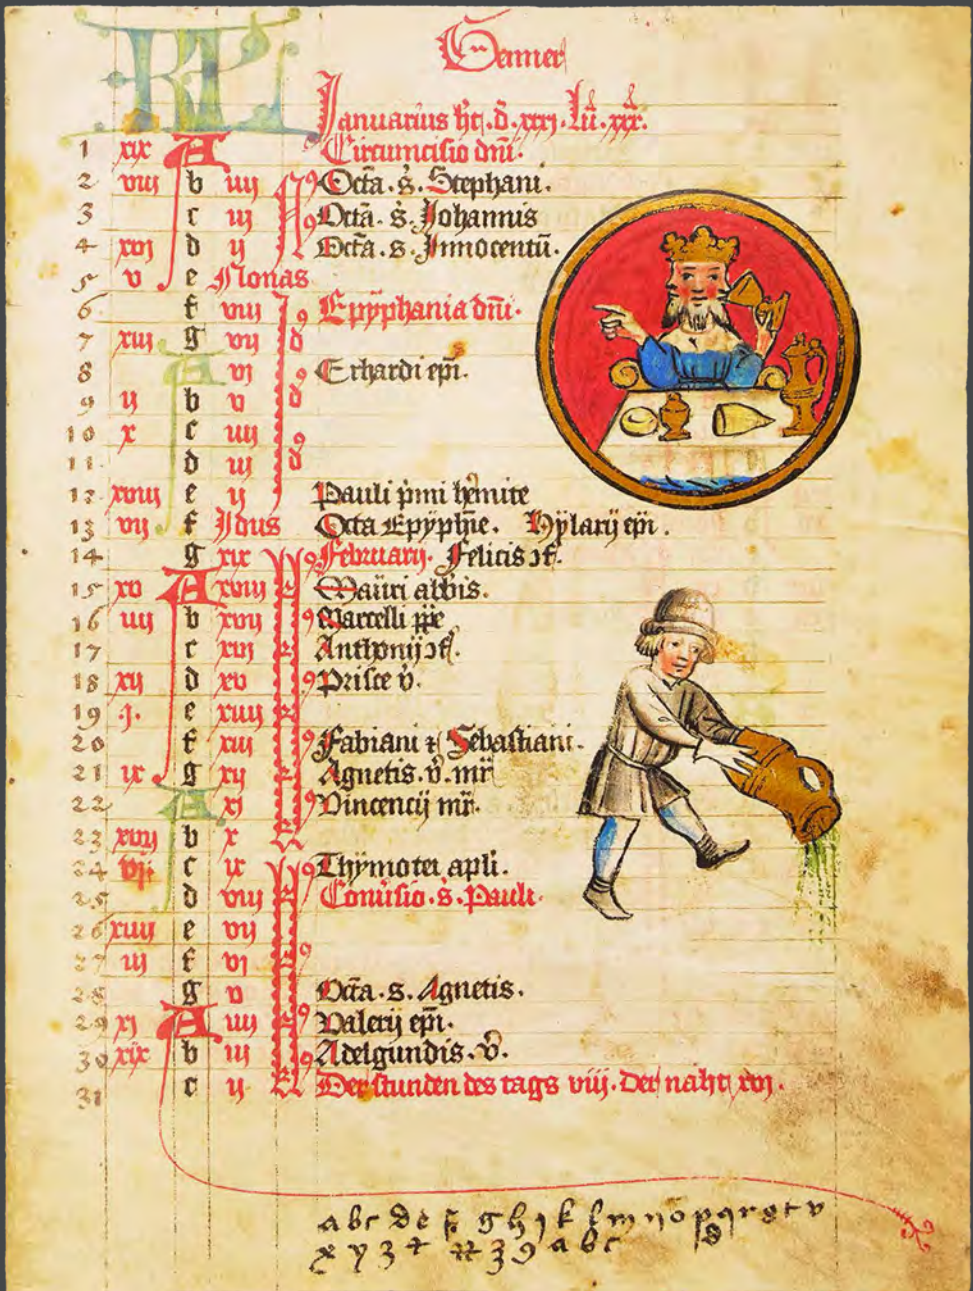 KL
Genner
Januarius ht. d. xxxj. Lu. xxx.
1 xix A Circumcisio dni.
2 viii b iiij Octa. s. Stephani.
3 c iij Octa. s. Johannis
4 xvj d ij Octa. s. Innocentu.
5 v e Nonas
6 f viij Epyphania dni.
7 xiij g vij
8 A vj Erhardi epi.
9 ij b v
10 x c iiij
11 d iij
12 xviij e ij Pauli pmi hmite
13 vij f Jdus Octa Epyphie. Hylarij epi.
14 g xix Februarij. Felicis
15 xv A xviij Mauri abbis.
16 iiij b xvij Marcelli
17 c xvj Anthonij
18 xij d xv Prisce v.
19 .j. e xiiij
20 f xiij Fabiani et Sebastiani.
21 ix g xij Agnetis. v. mr
22 A xj Vincencij mr.
23 xvij b x
24 c ix Thymotei apli.
25 d viij Conusio. s. Pauli.
26 xiiij e vij
27 iij f vj
28 g v Octa. s. Agnetis.
29 xj A iiij Valerij epi.
30 xix b iij Adelgundis. v.
31 c ij Der stunden des tags viij. Der naht xvj.
a b c d e f g h i k l m n o p q r s t v
x y z a b c